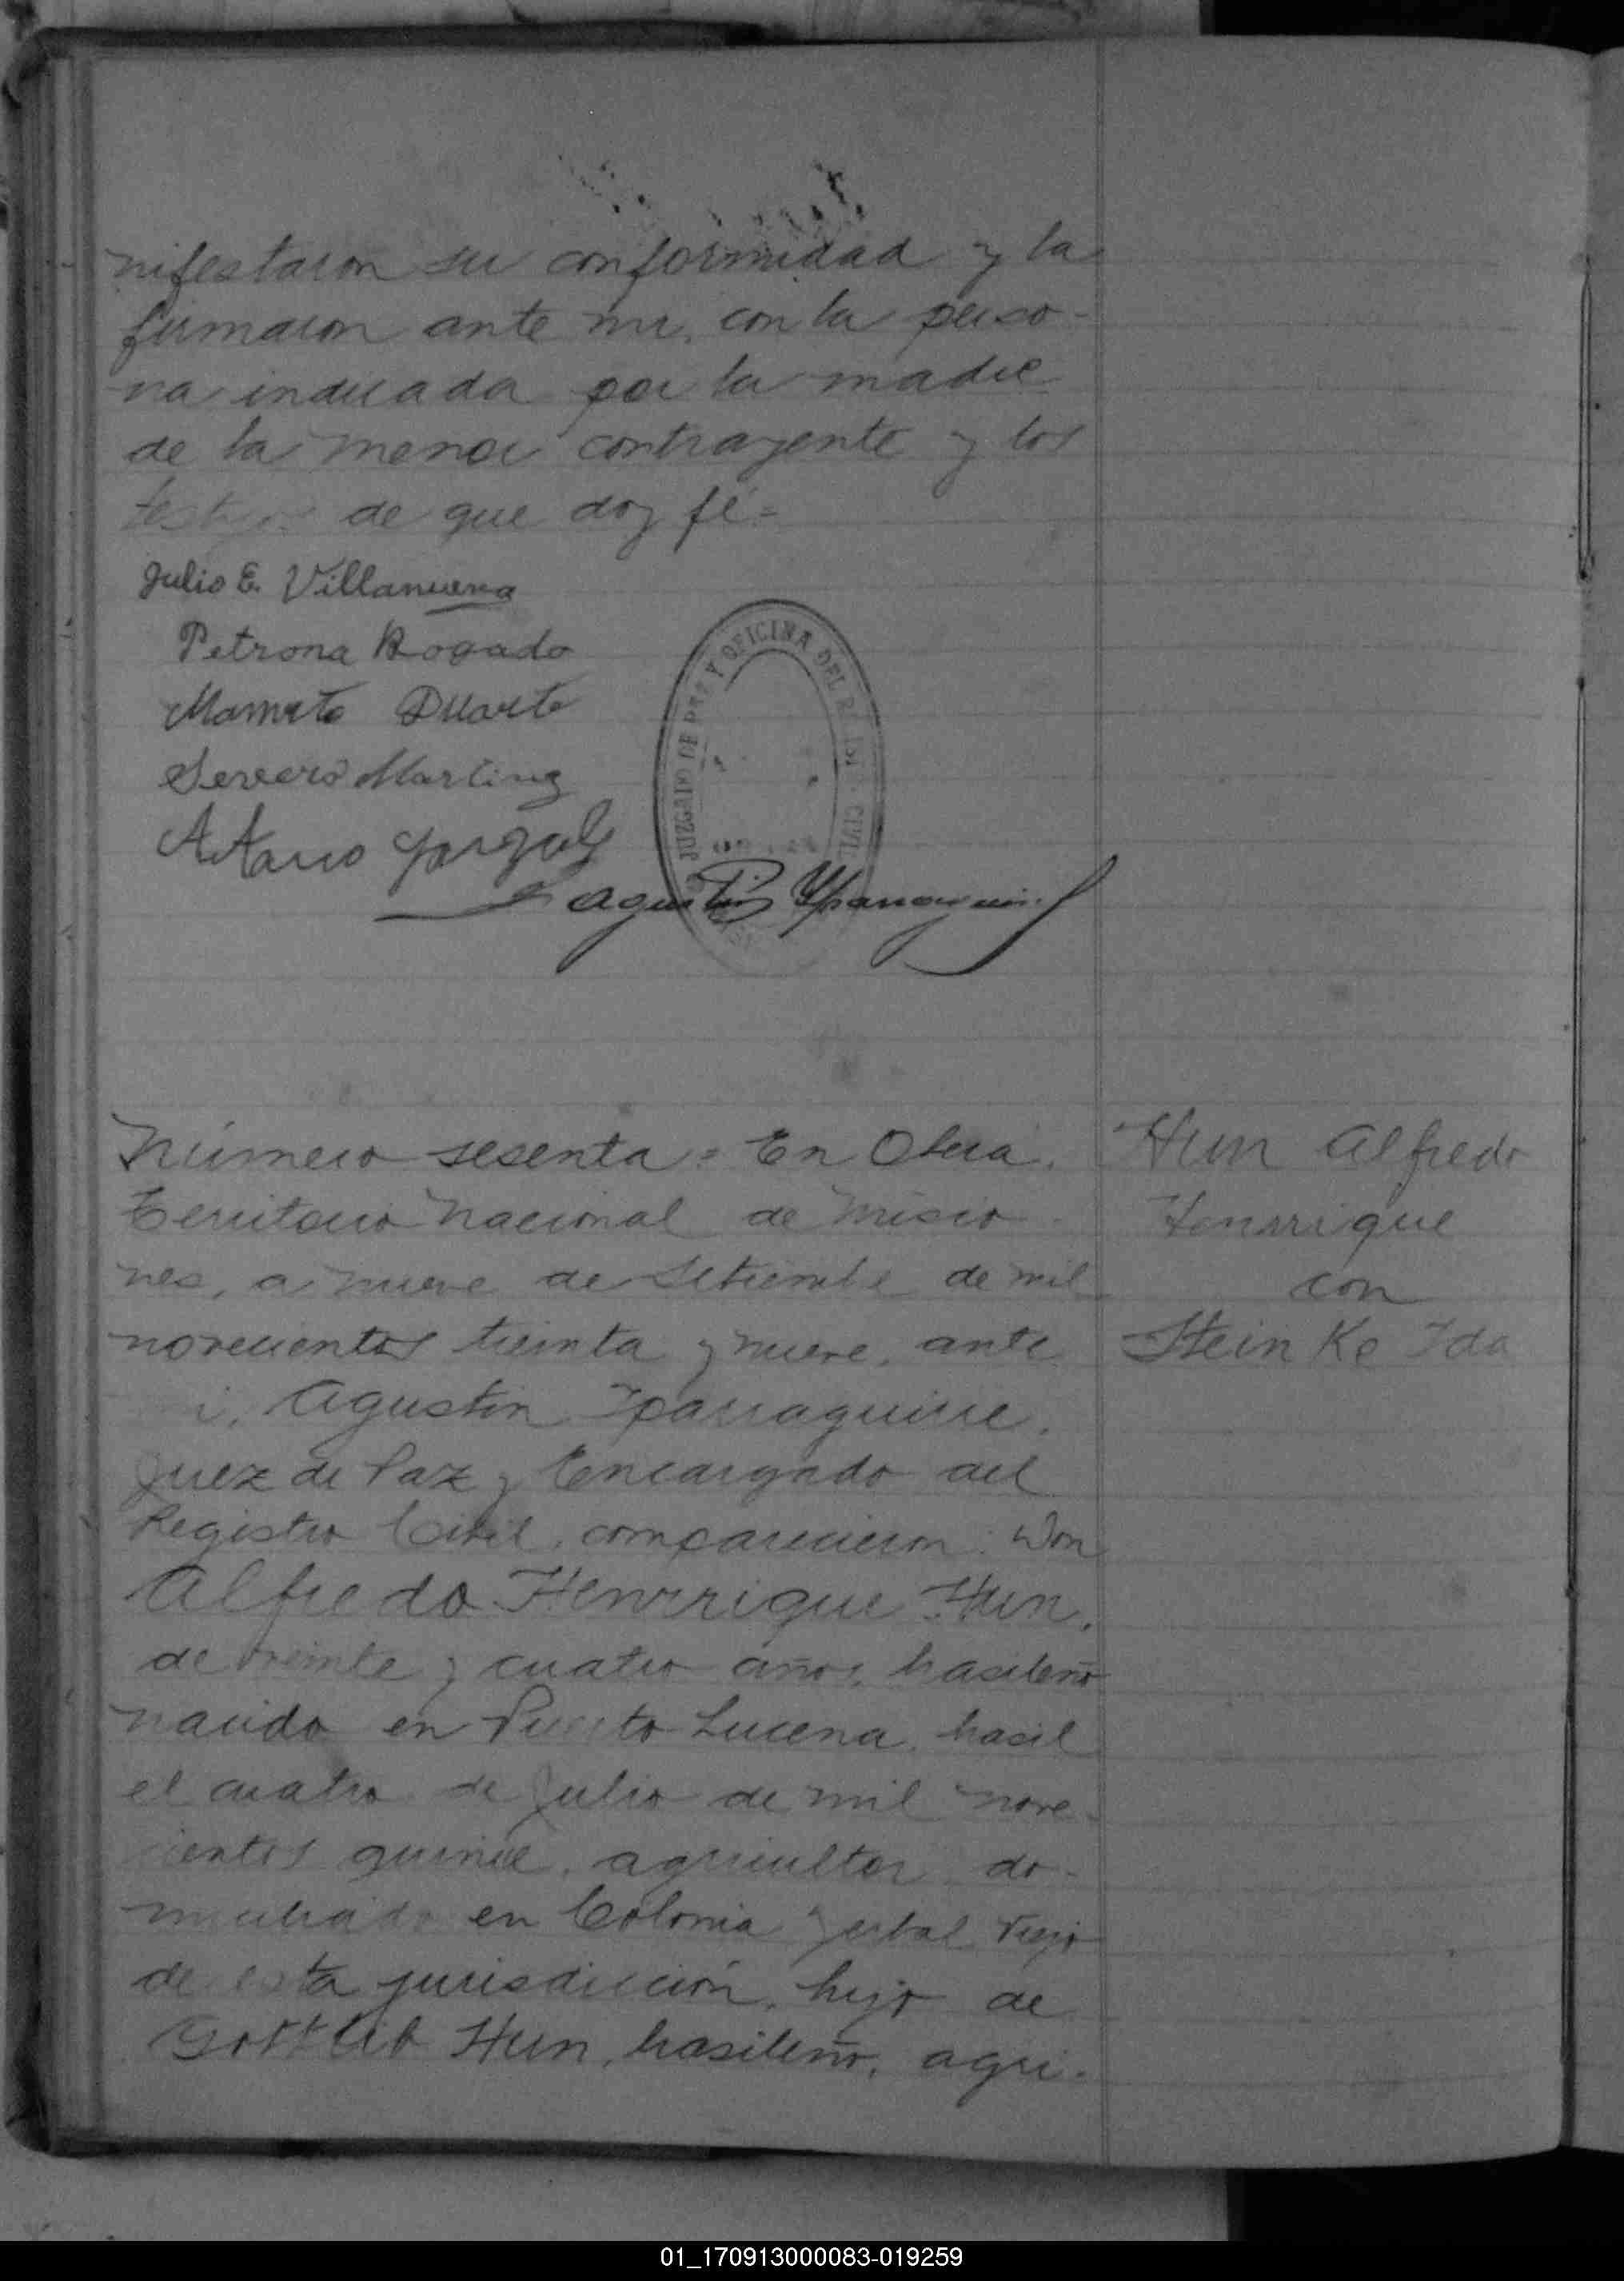 nifestaron su conformidad y la
firmaron ante mi, con la perso-
na indicada por la madre
de la menor contrayente y los
testigos de que doy fé=
Julio E. Villanueva
Petrona Rogado
Mamerto Duarte
Severo Martinez
JUZGADO DE PAZ Y OFICINA DEL CIVIL
Agustin Yparraguirre
Número sesenta = En Obera,
Territorio Nacional de Misio-
nes, a nueve de Setiembre de mil
novecientos treinta y nueve, ante
mi, Agustin Yparraguirre,
Juez de Paz y Encargado del
Registro Civil, comparecieron: Don
Alfredo Henrrique Hun,
de veinte y cuatro años, brasileño
nacido en Puerto Lucena, brasil
el cuatro de Julio de mil nove-
cientos quince, agricultor, do-
miciliado en Colonia Yerbal Viejo
de esta jurisdicción, hijo de
Gottlib Hun, brasileño, agri-
Hun Alfredo
Henrrique
con
Stein Ke Ida
01_170913000083-019259